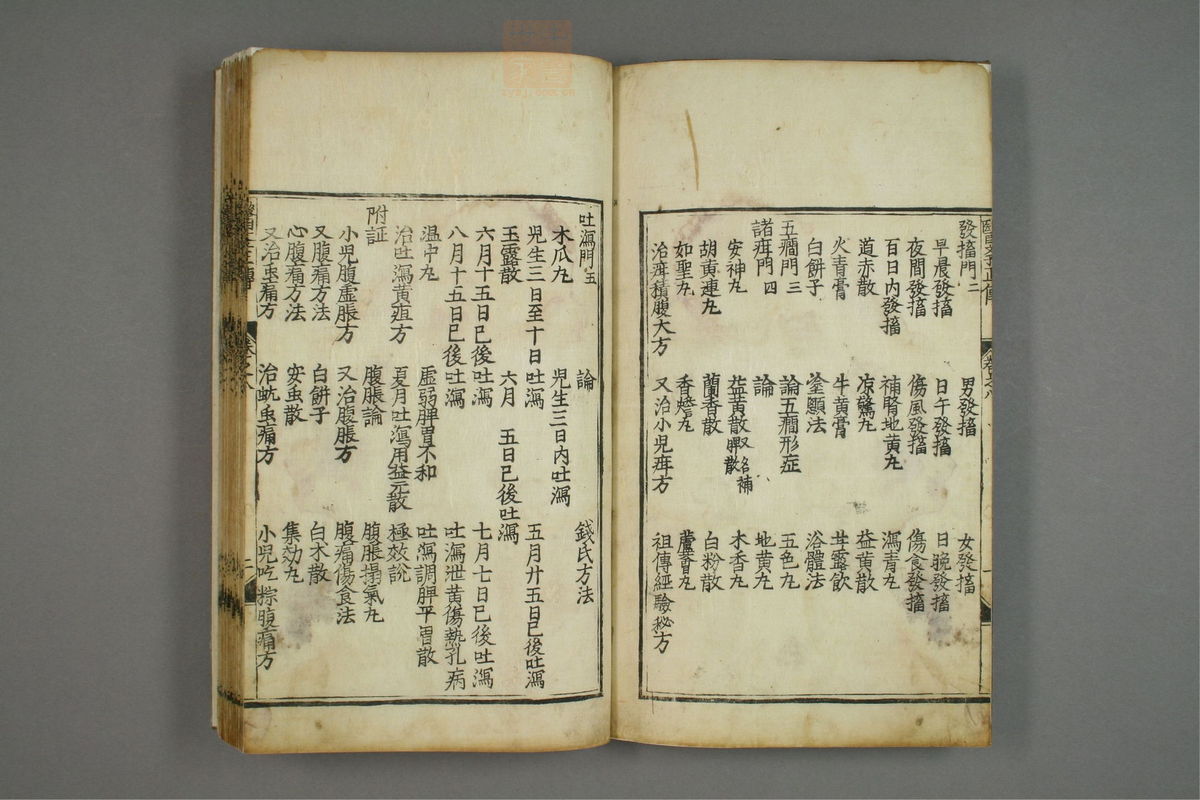 發搐門二 男發搐 女發搐
早晨發搐 日午發搐 日晚發搐
夜間發搐 傷風發搐 傷食發搐
百日內發搐 補腎地黃丸 瀉青丸
道赤散 凉驚丸 益黃散
火青膏 牛黃膏 甘露飲
白餅子 塗顖法 浴體法
五癇門三 論五癇形症 五色丸
諸疳門四 論 地黃丸
安神丸 益黃散又名補脾散 木香丸
胡黃連丸 蘭香散 白粉散
如聖丸 香蟾丸 蘆薈丸
治疳積腹大方 又治小兒疳方 祖傳經驗秘方
卷之八
吐瀉門五 論 錢氏方法
木瓜丸 兒生三日內吐瀉
兒生三日至十日吐瀉 五月廿五日已後吐瀉
玉露散 六月 五日已後吐瀉
六月十五日已後吐瀉 七月七日已後吐瀉
八月十五日已後吐瀉 吐瀉泄黃傷熱乳病
温中丸 虛弱脾胃不和 吐瀉調脾平胃散
治吐瀉黃疸方 夏月吐瀉用益元散 極效說
附証 腹脹論 腹脹搨氣丸
小兒腹虛脹方 又治腹脹方 腹痛傷食法
又腹痛方法 白餅子 白木散
心腹痛方法 安虫散 集効丸
又治虫痛方 治蚘虫痛方 小兒吃粽腹痛方
卷之八 二